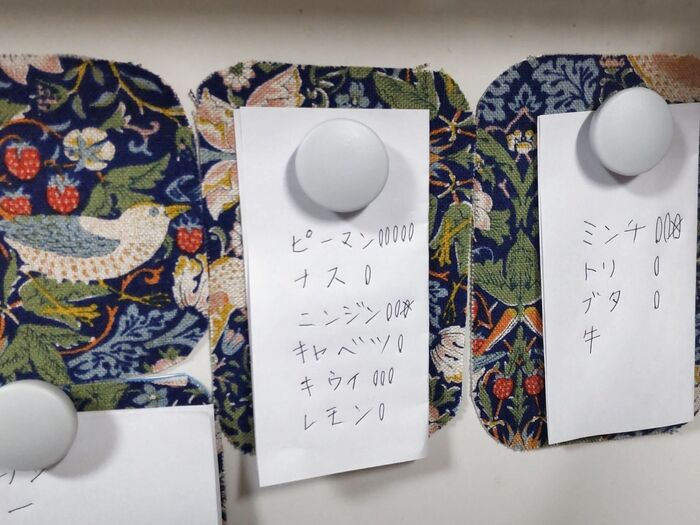 ピーマン00000
ナス 0
ニンジン00☆
キャベツ0
キウイ 000
レモン0
ミンチ 00☆
トリ 0
ブタ 0
牛